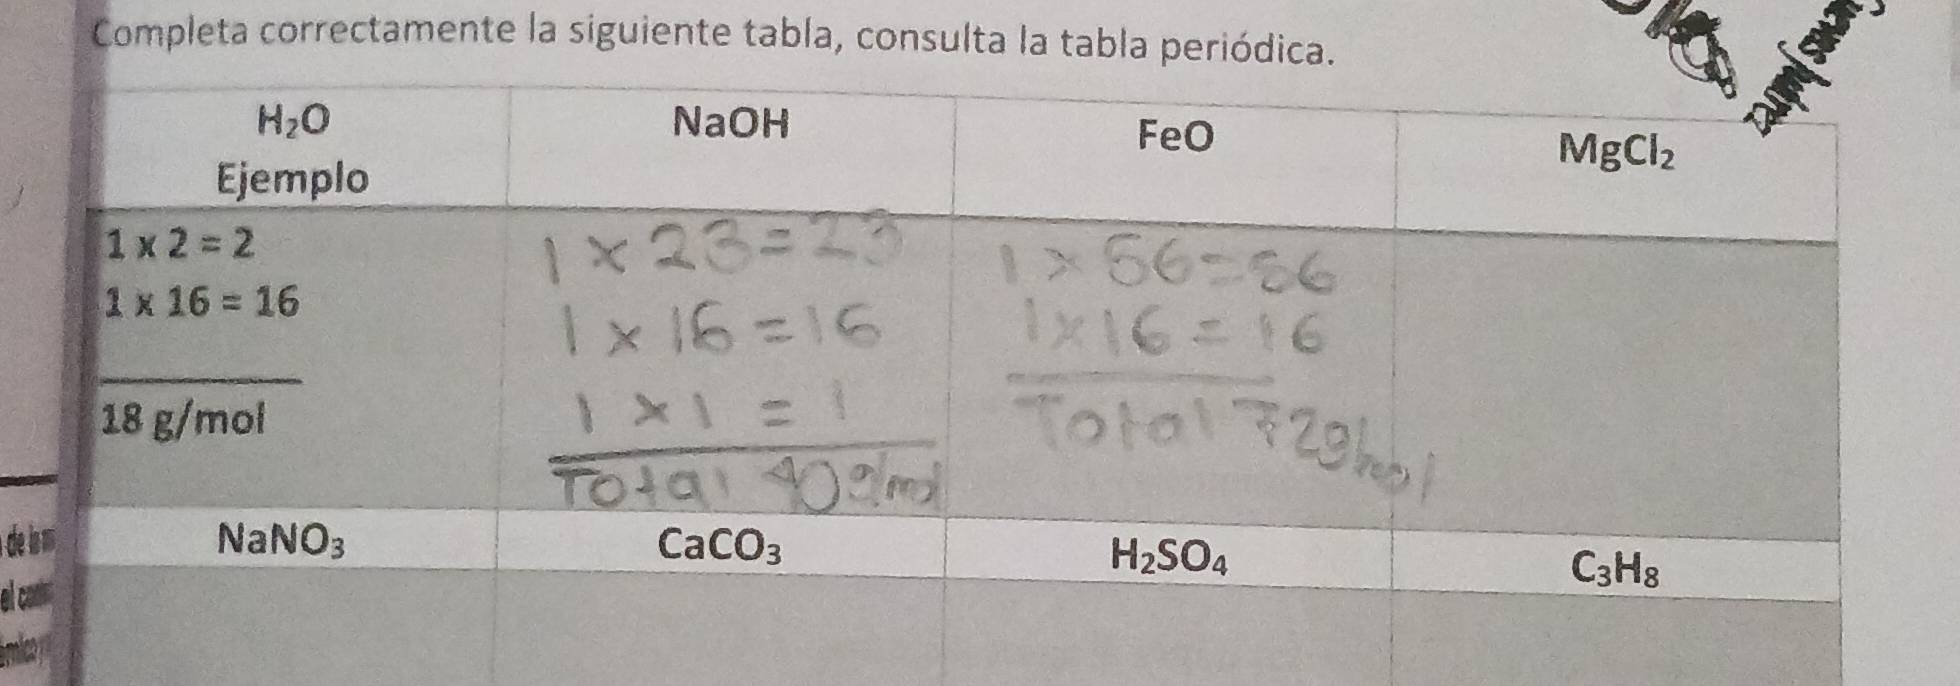 Completa correctamente la siguiente tabla, consulta la tabla periódica.
H₂O
Ejemplo
NaOH
FeO
MgCl₂
1 x 2 = 2
1 x 16 = 16
18 g/mol
1 x 23 = 23
1 x 16 = 16
1 x 1 = 1
Total 40 g/mol
1 x 56 = 56
1 x 16 = 16
Total 72 g/mol
NaNO₃
CaCO₃
H₂SO₄
C₃H₈